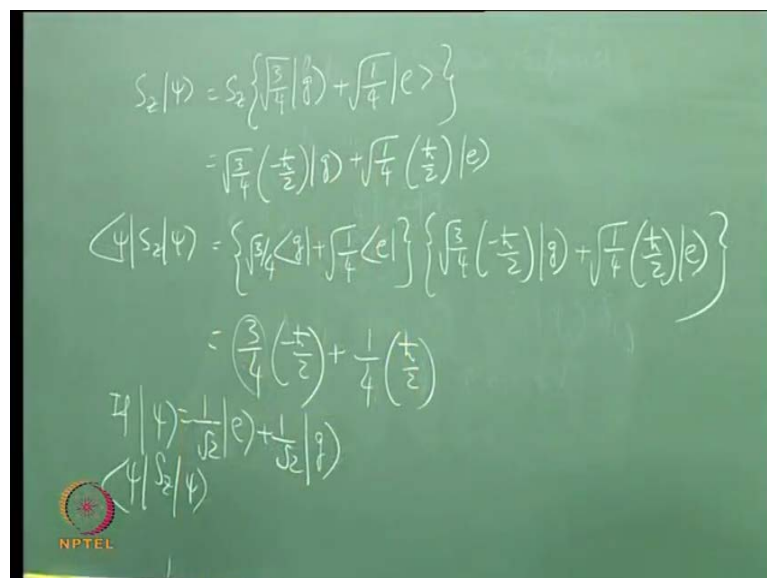 S_z|ψ⟩ = S_z{√(3/4)|g⟩ + √(1/4)|e⟩}
= √(3/4)(-ħ/2)|g⟩ + √(1/4)(ħ/2)|e⟩
⟨ψ|S_z|ψ⟩ = {√(3/4)⟨g| + √(1/4)⟨e|}{√(3/4)(-ħ/2)|g⟩ + √(1/4)(ħ/2)|e⟩}
= (3/4)(-ħ/2) + 1/4(ħ/2)
If |ψ⟩ = 1/√2|e⟩ + 1/√2|g⟩
⟨ψ|S_z|ψ⟩
NPTEL